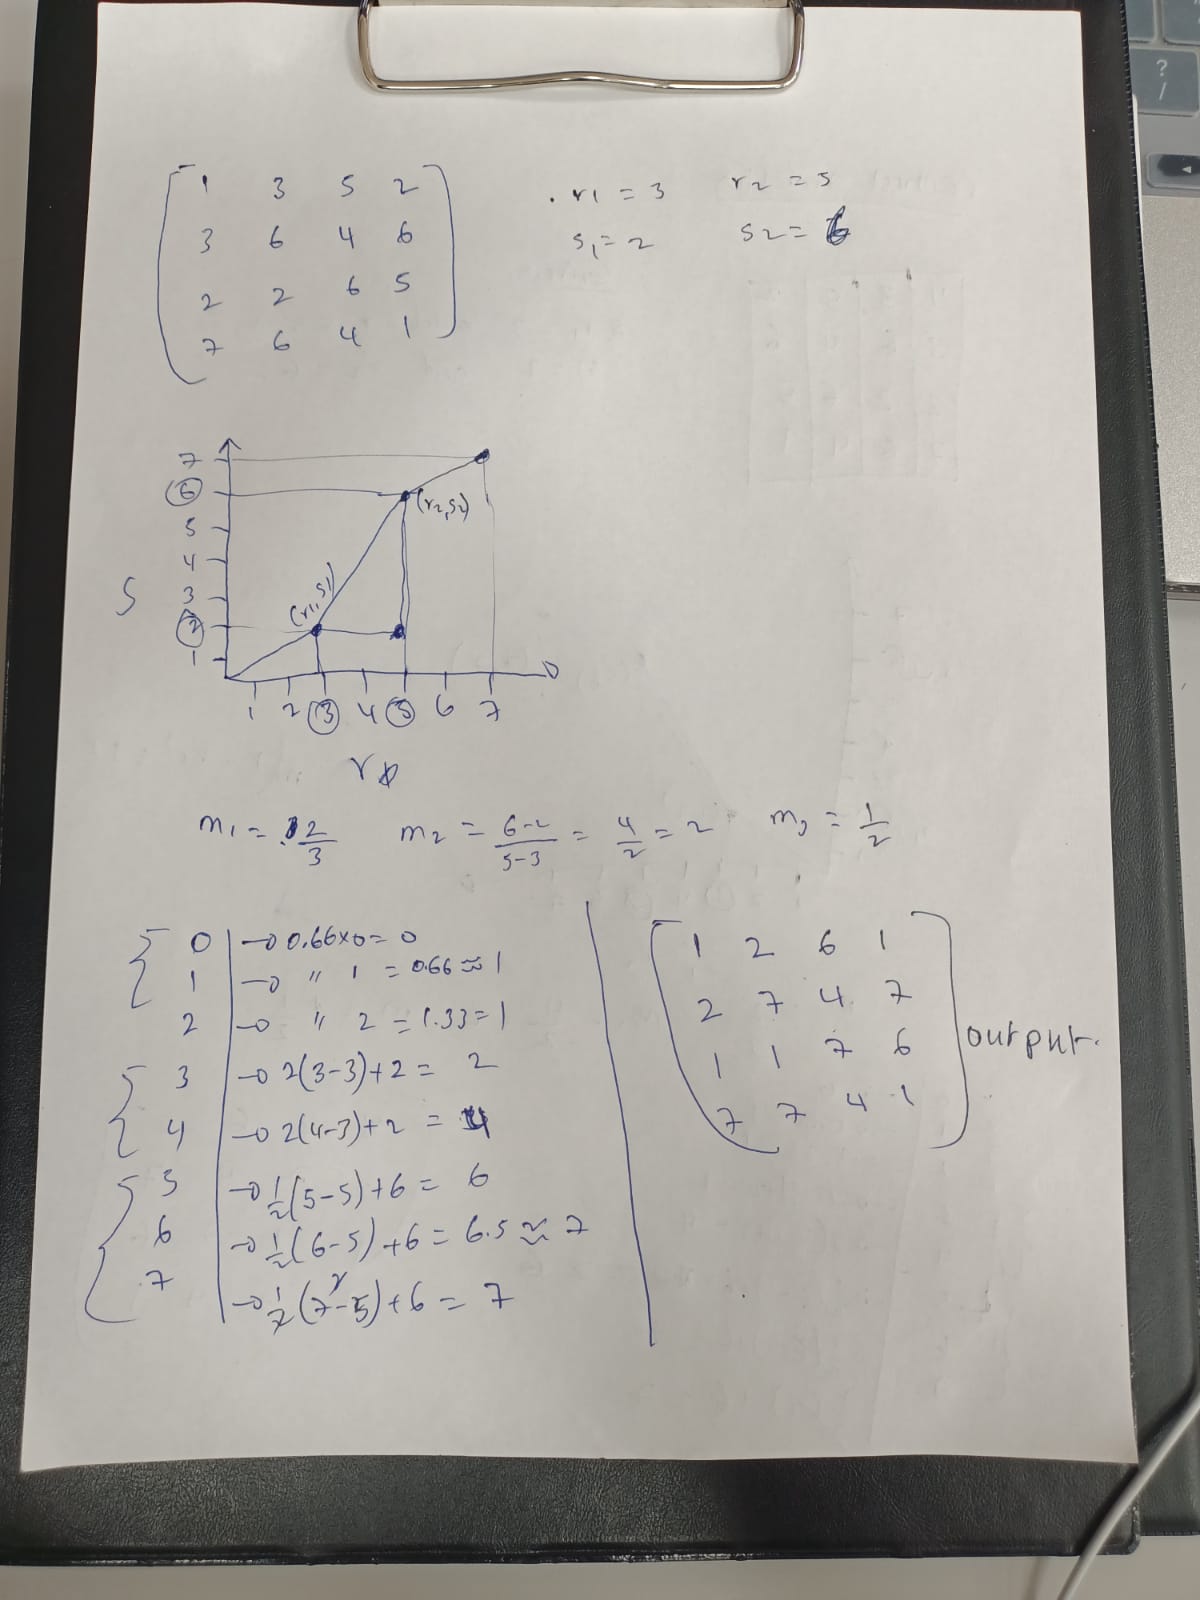 1 3 5 2
3 6 4 6
2 2 6 5
7 6 4 1
. r1 = 3 r2 = 5
s1 = 2 s2 = 6
7
6
5
4
3
2
1
S
(r1,s1)
(r2,s2)
1 2 3 4 5 6 7
r
m1 = 2/3 m2 = 6-2/5-3 = 4/2 = 2 m3 = 1/2
0 → 0.66×0 = 0
1 → " 1 = 0.66 ≈ 1
2 → " 2 = 1.33 = 1
3 → 2(3-3)+2 = 2
4 → 2(4-3)+2 = 4
5 → 1/2(5-5)+6 = 6
6 → 1/2(6-5)+6 = 6.5 ≈ 7
7 → 1/2(7-5)+6 = 7
1 2 6 1
2 7 4 7
1 1 7 6
7 7 4 1
output.
?
/